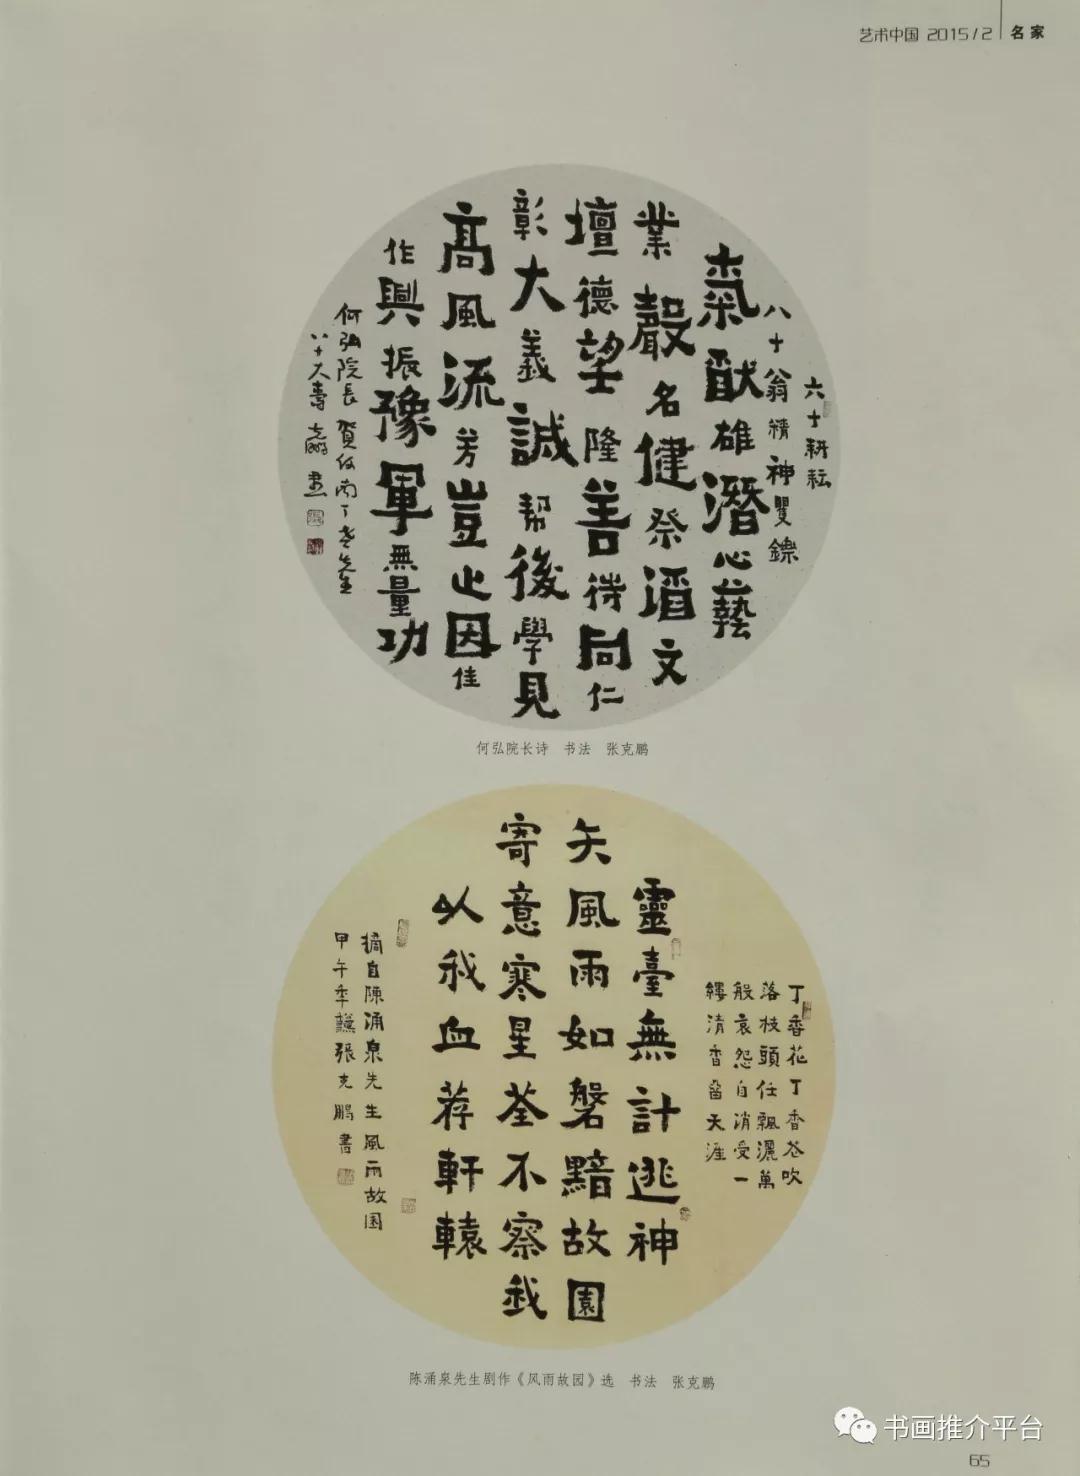 艺术中国 2015/2 名家
六十耕耘
八十翁精神矍鑠
氣猷雄潛心藝
業聲名健祭酒文
壇德望隆善待同仁
彰大義誠幫後學見
高風流芳豈止因佳
作興振豫軍無量功
何弘院長賀
八十大壽
何弘院长诗 书法 张克鹏
丁香花丁香花吹
落枝頭任飄灑萬
般哀怨自消受一
縷清香留天涯
靈臺無計逃神
矢風雨如磐黯故園
寄意寒星荃不察我
以我血荐軒轅
摘自陳涌泉先生風雨故園
甲午季張克鵬書
陈涌泉先生剧作《风雨故园》选 书法 张克鹏
书画推介平台
65